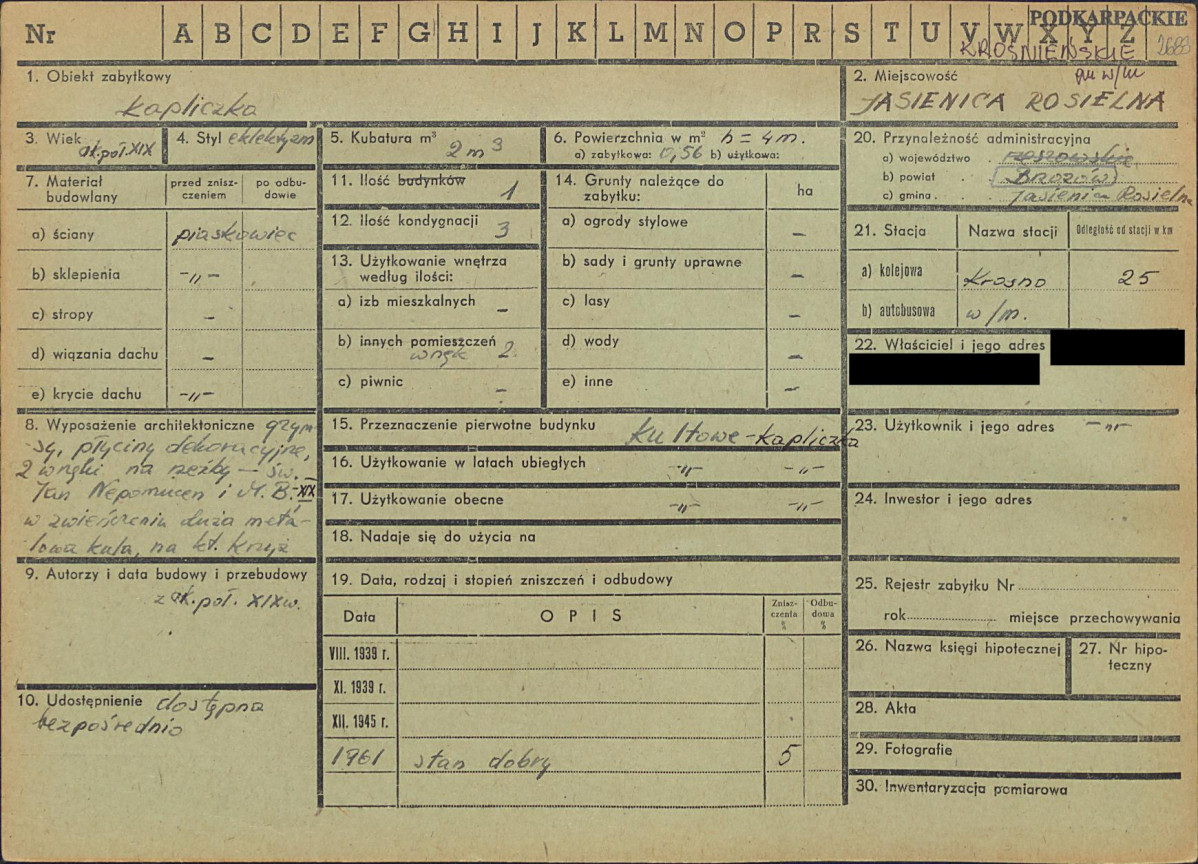 Nr A B C D E F G H I J K L M N O P R S T U V W X Y Z
PODKARPACKIE
KROŚNIEŃSKIE
gm w/m
1. Obiekt zabytkowy
kapliczka
2. Miejscowość
JASIENICA ROSIELNA
3. Wiek ok. poł. XIX
4. Styl eklektyzm
5. Kubatura m³
2 m³
6. Powierzchnia w m² h = 4 m
a) zabytkowa: 0,56 b) użytkowa:
20. Przynależność administracyjna
a) województwo . rzeszowskie
b) powiat . . BRZOZÓW
c) gmina . . Jasienica Rosielna
7. Materiał budowlany
przed znisz-
czeniem
po odbu-
dowie
a) ściany piaskowiec
b) sklepienia -„-
c) stropy -
d) wiązania dachu -
e) krycie dachu -„-
11. Ilość budynków 1
12. Ilość kondygnacji 3
13. Użytkowanie wnętrza
według ilości:
a) izb mieszkalnych -
b) innych pomieszczeń
wnęk 2.
c) piwnic -
14. Grunty należące do
zabytku:
ha
a) ogrody stylowe -
b) sady i grunty uprawne -
c) lasy -
d) wody -
e) inne -
21. Stacja Nazwa stacji Odległość od stacji w km
a) kolejowa Krosno 25
b) autobusowa w/m.
22. Właściciel i jego adres
8. Wyposażenie architektoniczne gzym-
sy, płyciny dekoracyjne,
2 wnęki na rzeźby – św.
Jan Nepomucen i M.B. - XIX
w zwieńczeniu duża meta-
lowa kula, na kt. krzyż
15. Przeznaczenie pierwotne budynku kultowe - kapliczka
16. Użytkowanie w latach ubiegłych -„- -„-
17. Użytkowanie obecne -„- -„-
18. Nadaje się do użycia na
23. Użytkownik i jego adres -„-
24. Inwestor i jego adres
9. Autorzy i data budowy i przebudowy
z ok. poł. XIX w.
19. Data, rodzaj i stopień zniszczeń i odbudowy
Data OPIS
Znisz-
czenia
%
Odbu-
dowa
%
VIII. 1939 r.
XI. 1939 r.
XII. 1945 r.
1961 stan dobry 5
10. Udostępnienie dostępna
bezpośrednio
25. Rejestr zabytku Nr
rok miejsce przechowywania
26. Nazwa księgi hipotecznej
27. Nr hipo-
teczny
28. Akta
29. Fotografie
30. Inwentaryzacja pomiarowa